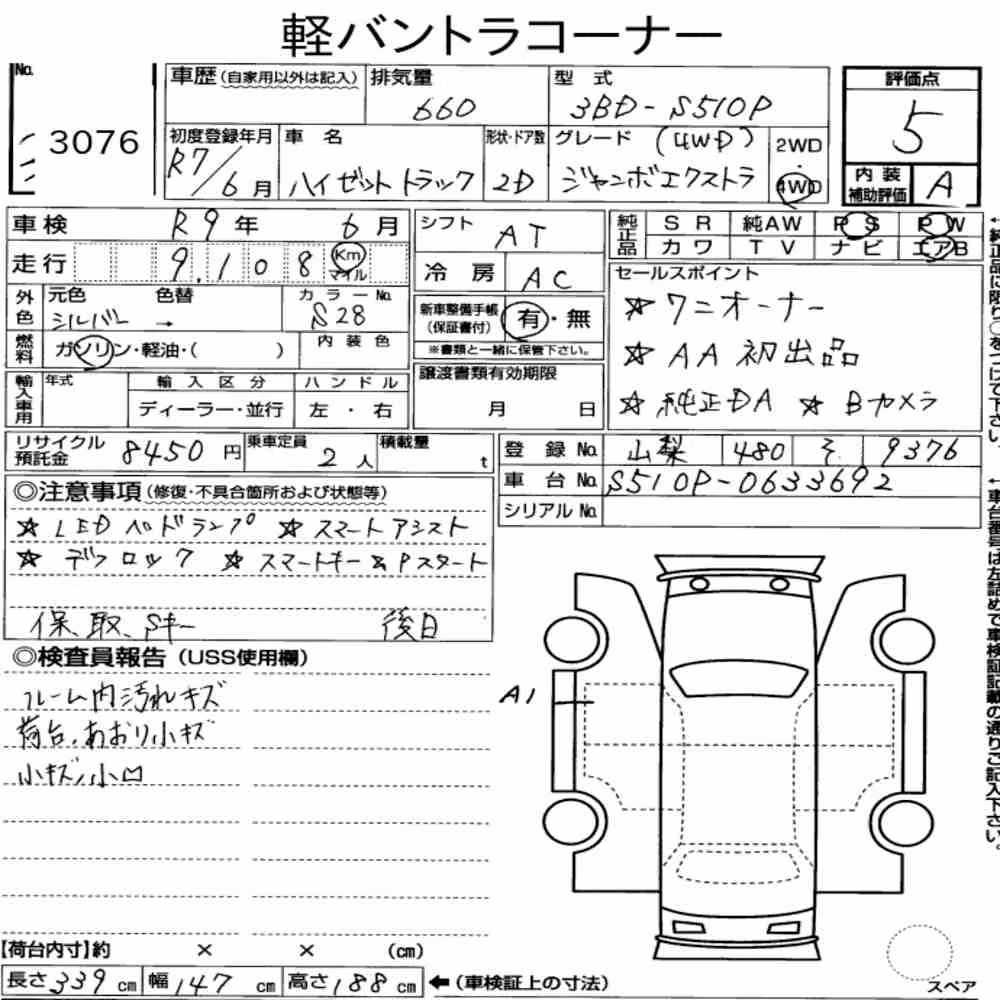 軽バントラコーナー
No. 3076
車歴(自家用以外は記入)
排気量 660
型式 3BD-S510P
評価点 5
初度登録年月 R7/6月
車名 ハイゼットトラック
形状・ドア数 2D
グレード (4WD) ジャンボエクストラ
2WD・4WD
内装補助評価 A
車検 R9年 6月
シフト AT
純正品 SR 純AW PS PW
カワ TV ナビ エアB
走行 9,108 Km マイル
冷房 AC
セールスポイント
☆ワンオーナー
☆AA初出品
☆純正DA ☆Bカメラ
外色 元色 シルバー → 色替 カラーNo. S28
新車整備手帳(保証書付) 有・無
※書類と一緒に保管下さい。
燃料 ガソリン・軽油・( ) 内装色
譲渡書類有効期限 月 日
輸入車用 年式 輸入区分 ハンドル
ディーラー・並行 左・右
リサイクル預託金 8450円 乗車定員 2人 積載量 t
登録No. 山梨 480 そ 9376
車台No. S510P-0633692
シリアルNo.
◎注意事項(修復・不具合箇所および状態等)
☆LEDヘッドランプ ☆スマートアシスト
☆デフロック ☆スマートキー&Pスタート
保、取、Sキー 後日
◎検査員報告(USS使用欄)
フレーム内汚れキズ
荷台、あおり小キズ
小キズ小凹
A1
【荷台内寸】約 × × (cm)
長さ339cm 幅147cm 高さ188cm ←(車検証上の寸法)
スペア
←純正品に限り○をつけて下さい。
←車台番号は左詰めで車検証記載の通りご記入下さい。